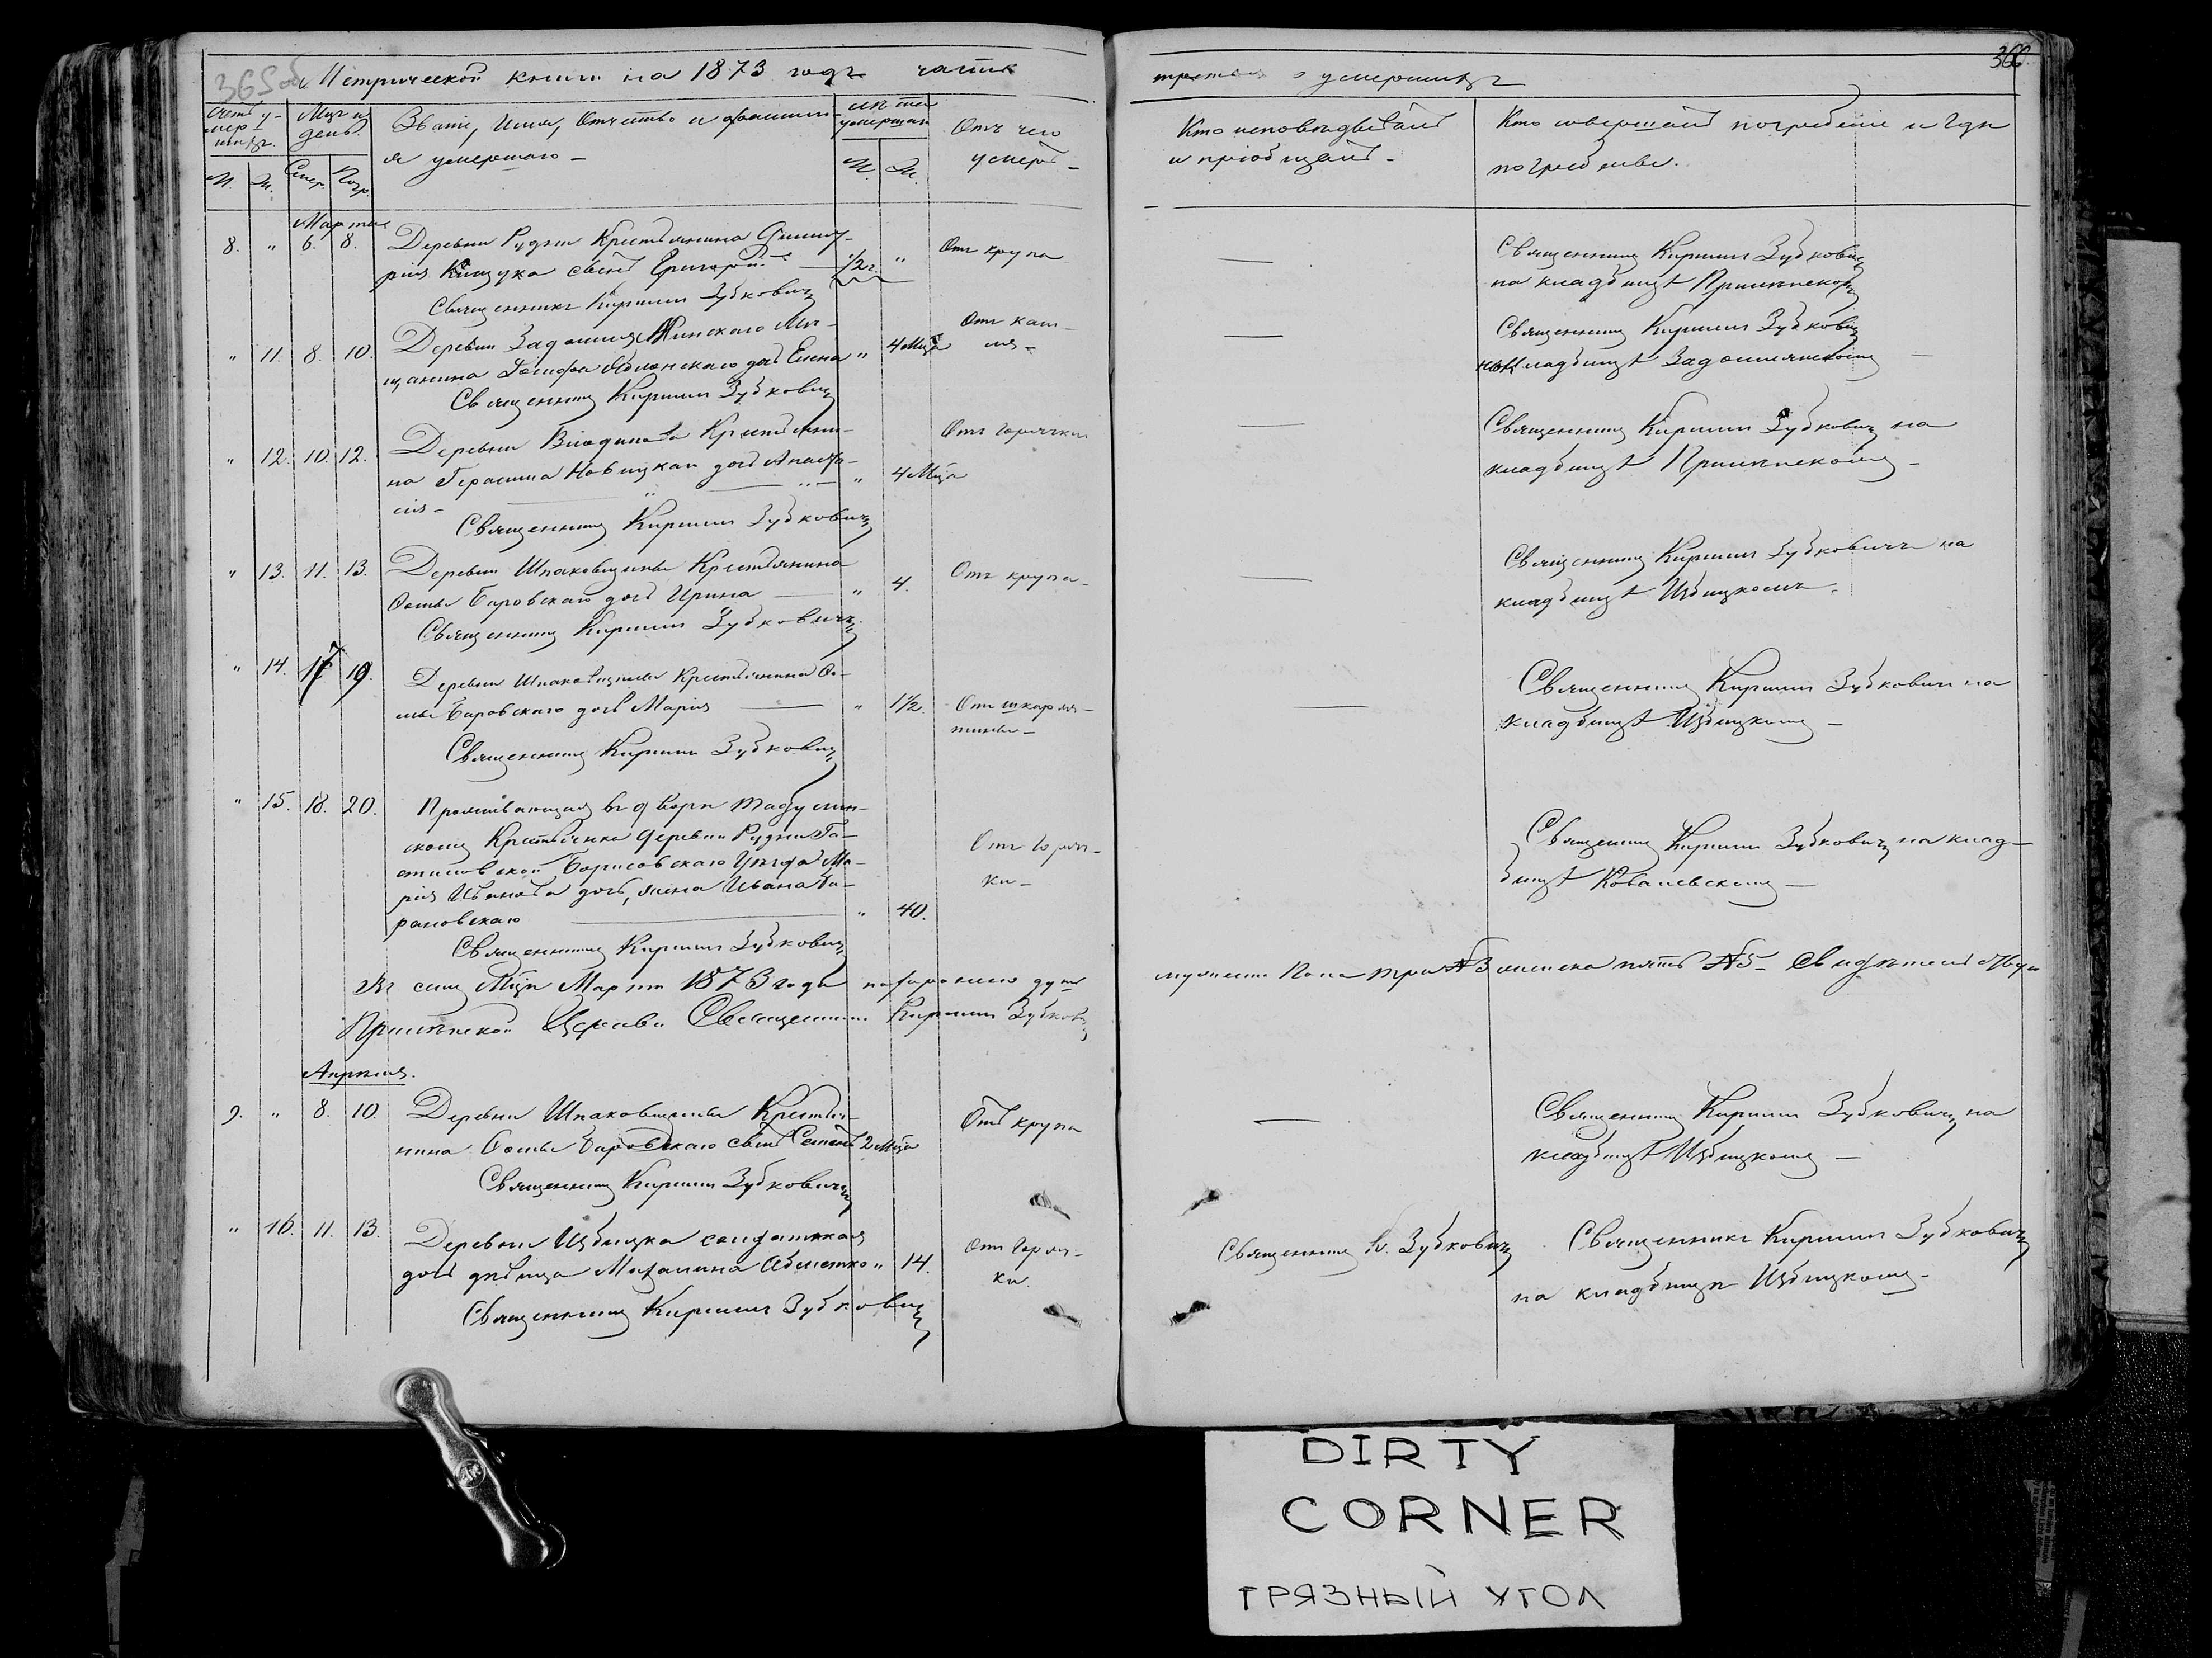 365 об Метрической книги на 1873 годъ часть
третья о умершихъ
366
Счетъ у-
мер-
шихъ.
Мцъ и
день.
Званіе, Имя, Отчество и фамилі-
я умершаго -
лѣта
умершаго
Отъ чего
умеръ -
М. Ж. Смер. Погр. М. Ж.
Кто исповѣдывалъ
и пріобщалъ -
Кто совершалъ погребеніе и гдѣ
погребены.
Марта
8. " 6. 8. Деревни Рудни Крестьянина
сынъ Григорій 1/2 г. " Отъ крупа
Священникъ Кириллъ Зубковичъ
Священникъ Кириллъ Зубковичъ
на кладбищѣ
" 11. 8. 10. Деревни Минскаго Мѣ-
щанина дочь Елена " 4 Мцъ Отъ каш-
ля -
Священникъ Кириллъ Зубковичъ
Священникъ Кириллъ Зубковичъ
на кладбищѣ
" 12. 10. 12. Деревни Крестьяни-
на Герасима дочь Анаста-
сія - " 4 Мцъ Отъ горячки
Священникъ Кириллъ Зубковичъ
Священникъ Кириллъ Зубковичъ на
кладбищѣ
" 13. 11. 13. Деревни Шпаковщины Крестьянина
Фомы Боровскаго дочь Ирина " 4. Отъ крупа -
Священникъ Кириллъ Зубковичъ
Священникъ Кириллъ Зубковичъ на
кладбищѣ Избицкомъ.
" 14. 17 19. Деревни Шпаковщины Крестьянина Фо-
мы Боровскаго дочь Марія " 1 1/2. Отъ шкарля-
тины -
Священникъ Кириллъ Зубковичъ
Священникъ Кириллъ Зубковичъ на
кладбищѣ Избицкомъ -
" 15. 18. 20. Проживающая въ дворѣ
Крестьянка деревни Рудни
Борисовскаго Уѣзда Ма-
рія Иванова дочь, жена Ивана Ба-
рановскаго " 40. Отъ Горяч-
ки -
Священникъ Кириллъ Зубковичъ
Священникъ Кириллъ Зубковичъ на клад-
бищѣ Ковалевскомъ -
Въ семъ Мцѣ Мартѣ 1873 года похоронено душъ
мужеска пола три №3 женска пять №5 -
Церкви Священникъ Кириллъ Зубковичъ
Апрѣля.
9. " 8. 10. Деревни Шпаковщины Крестья-
нина Фомы Боровскаго сынъ 2 Мцъ Отъ крупа
Священникъ Кириллъ Зубковичъ
Священникъ Кириллъ Зубковичъ на
кладбищѣ Избицкомъ -
" 16. 11. 13. Деревни Избицка солдатская
дочь дѣвица " 14. Отъ Горяч-
ки.
Священникъ К. Зубковичъ
Священникъ Кириллъ Зубковичъ
Священникъ Кириллъ Зубковичъ
на кладбищѣ Избицкомъ -
DIRTY
CORNER
ГРЯЗНЫЙ УГОЛ